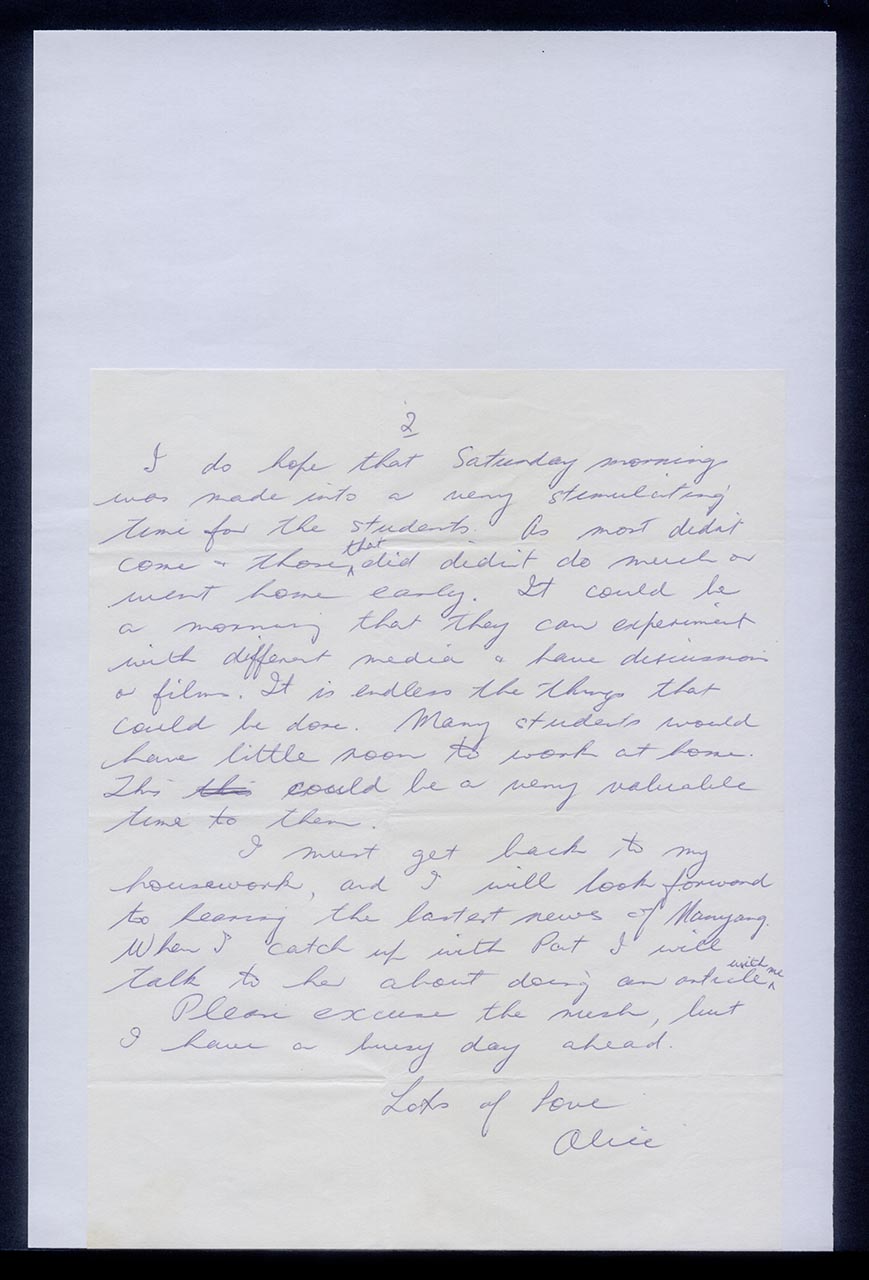 2
I do hope that Saturday morning
was made into a very stimulating
time for the students. As most didn't
come & those that did didn't do much or
went home early. It could be
a morning that they can experiment
with different media & have discussions
or films. It is endless the things that
could be done. Many students would
have little room to work at home.
This this could be a very valuable
time to them.
I must get back to my
housework, and I will look forward
to hearing the lastest news of Manyang.
When I catch up with Pat I will
talk to her about doing an article with me
Please excuse the rush, but
I have a busy day ahead.
Lots of love
Alice